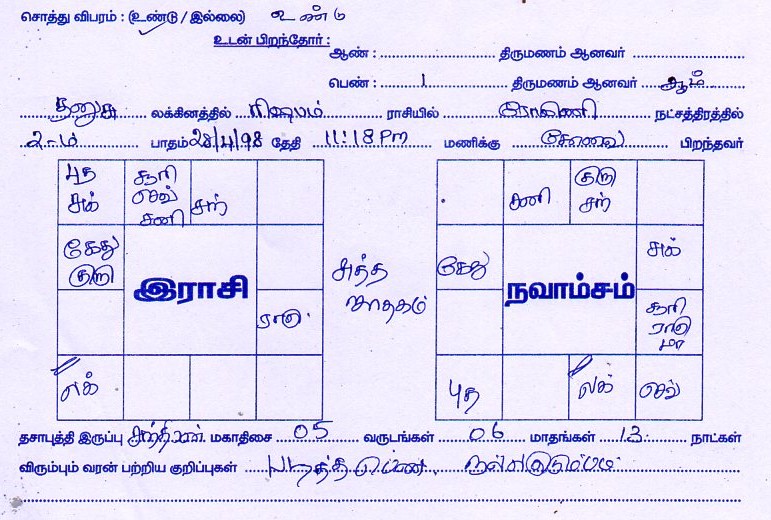 சொத்து விபரம் : (உண்டு / இல்லை) உண்டு
உடன் பிறந்தோர் :
ஆண் : திருமணம் ஆனவர்
பெண் : 1 திருமணம் ஆனவர் ஆம்
தனுசு லக்கினத்தில் ரிஷபம் ராசியில் ரோகிணி நட்சத்திரத்தில்
2-ம் பாதம் 28/4/98 தேதி 11:18 Pm மணிக்கு கோவை பிறந்தவர்
புத சுக்
சூரி செவ் சனி
சந்
கேது குரு
இராசி
ராகு
லக்
சுத்த ஜாதகம்
சனி
குரு சந்
கேது
நவாம்சம்
சுக்
சூரி ராகு மா
புத
லக்
செவ்
தசாபுத்தி இருப்பு சந்திரன் மகாதிசை 05 வருடங்கள் 06 மாதங்கள் 13 நாட்கள்
விரும்பும் வரன் பற்றிய குறிப்புகள் படித்த பெண். நல்ல குடும்பம்